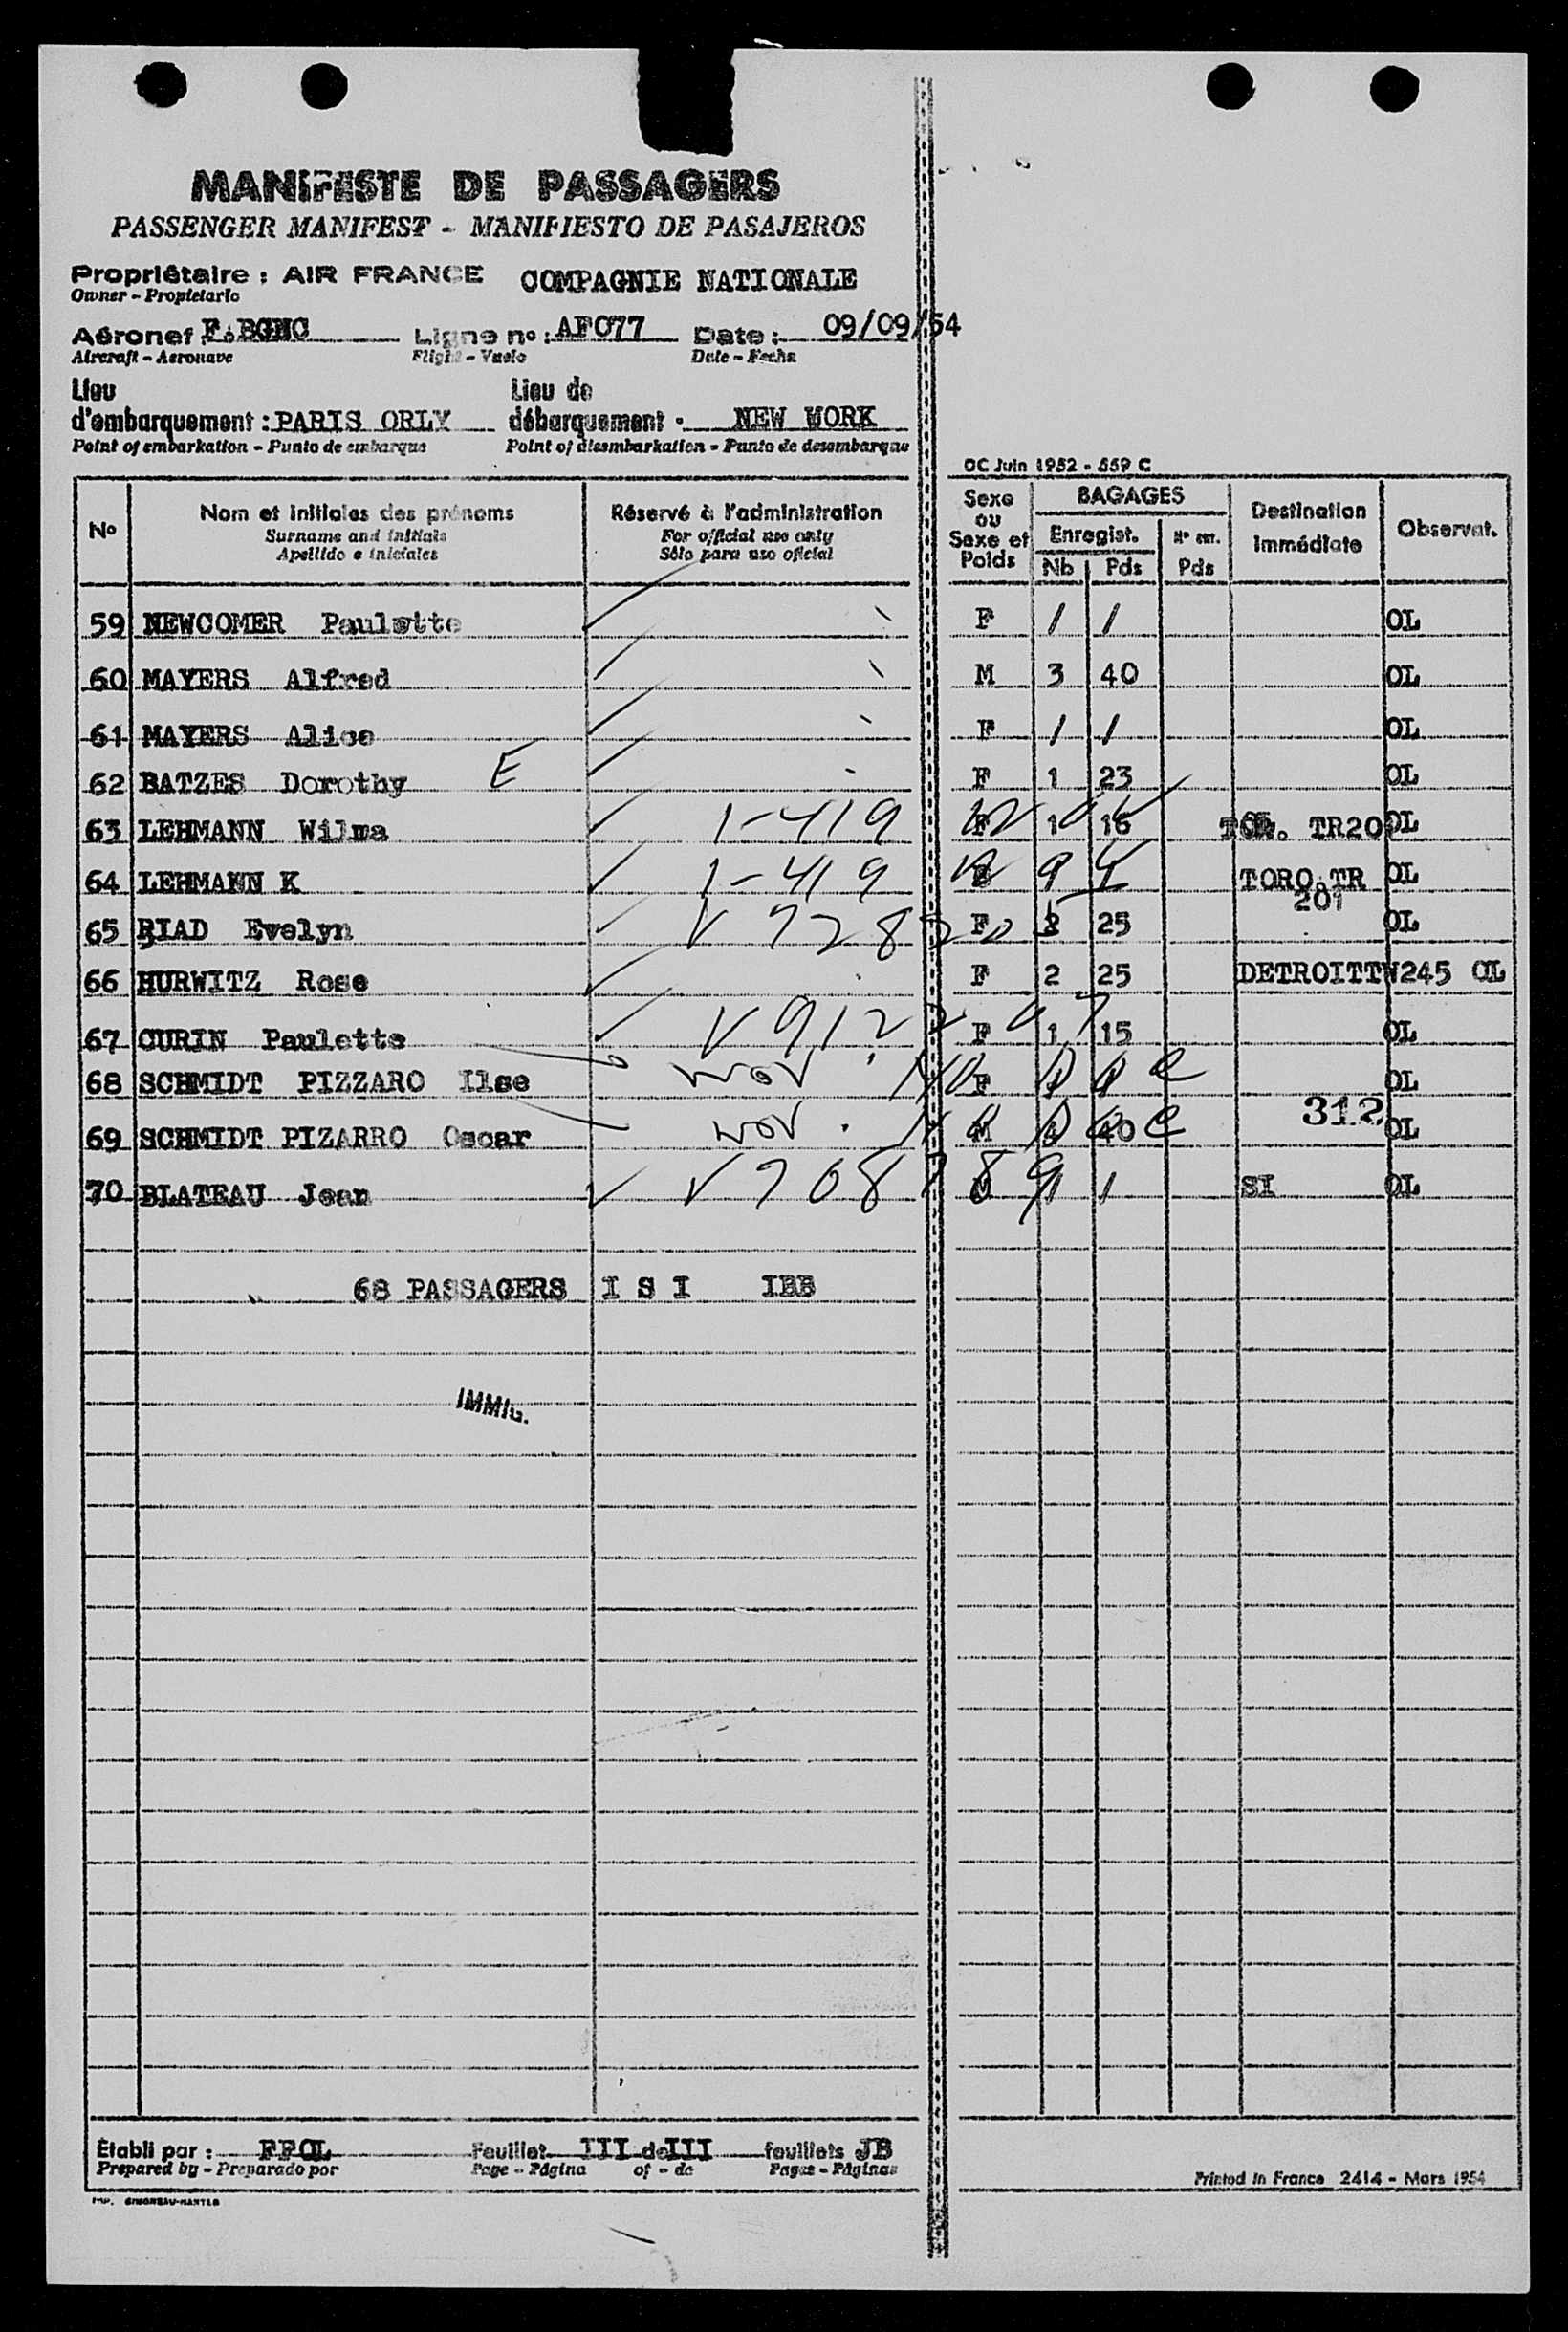 MANIFESTE DE PASSAGERS
PASSENGER MANIFEST - MANIFIESTO DE PASAJEROS
Propriétaire : AIR FRANCE COMPAGNIE NATIONALE
Owner - Propietario
Aéronef F.BGNC Ligne no : AF077 Date : 09/09/54
Aircraft - Aeronave Flight - Vuelo Date - Fecha
Lieu Lieu de
d'embarquement : PARIS ORLY débarquement - NEW WORK
Point of embarkation - Punto de embarque Point of disembarkation - Punto de desembarque
OC Juin 1952 - 559 C
No Nom et initiales des prénoms Réservé à l'administration Sexe ou Sexe et Poids BAGAGES Destination immédiate Observat.
Surname and initials For official use only Enregist.
Apellido e iniciales Sólo para uso oficial Nb Pds Pds
59 NEWCOMER Paulette F / / OL
60 MAYERS Alfred M 3 40 OL
61 MAYERS Alice F / / OL
62 BATZES Dorothy E F 1 23 OL
63 LEHMANN Wilma 1-419 1 TR20 OL
64 LEHMANN K 1-419 TORO TR OL
201
65 RIAD Evelyn F 25 OL
66 HURWITZ Rose F 2 25 DETROITTW245 OL
67 CURIN Paulette F 1 15 OL
68 SCHMIDT PIZZARO Ilse WOV F OL
312
69 SCHMIDT PIZARRO Oscar WOV M OL
70 BLATEAU Jean M SI OL
68 PASSAGERS I S I IBB
IMMIG.
Établi par : FFOL Feuillet III de III feuillets JB
Prepared by - Preparado por Page - Página of - de Pages - Páginas
Printed in France 2414 - Mars 1954
IMP. SIMONEAU-NANTES